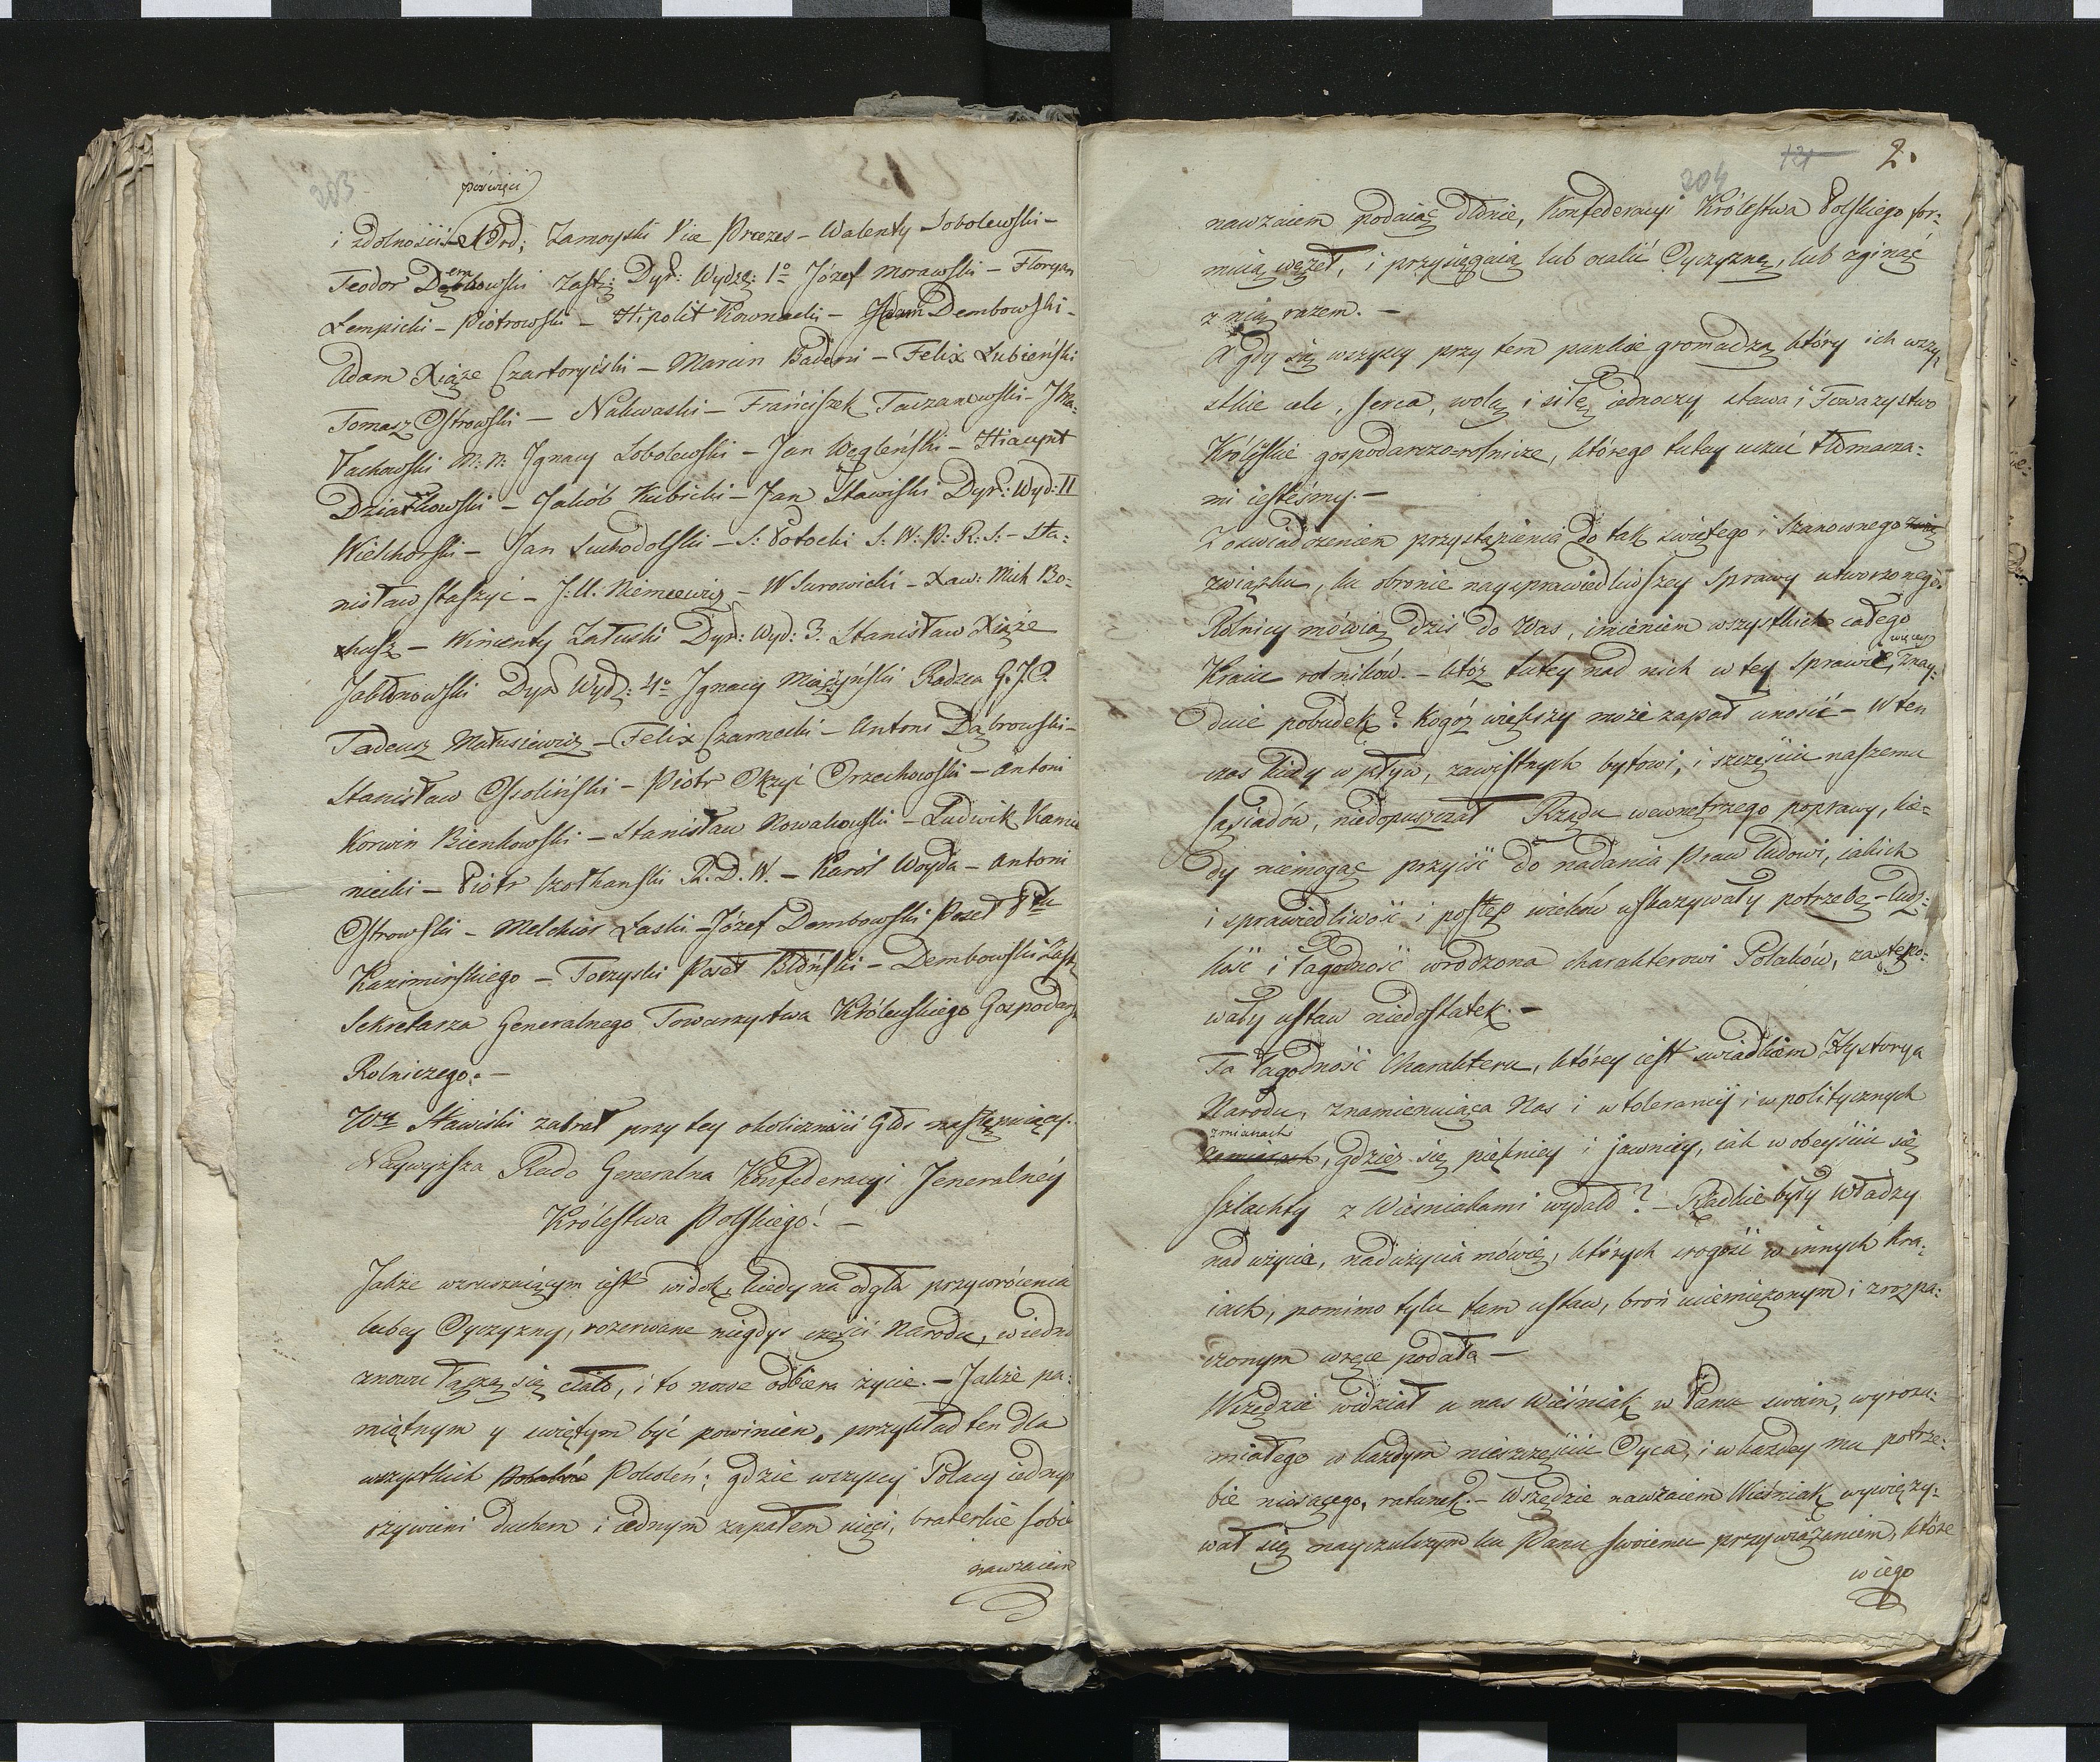 203.
poświęci
i zdolności. Ord; Zamoyski Vice Prezes – Walenty Sobolewski –
Teodor Dembowski Zastę: Dyr: Wydz: 1º Józef Morawski – Floryan
Łempicki – Piotrowski – Hipolit Kownacki – Adam Dembowski –
Adam Xiąże Czartoryiski – Marcin Badeni – Felix Łubieński
Tomasz Ostrowski – Nakwaski – Franciszek Taczanowski –
Tachowski m. n: Ignacy Sobolewski – Jan Węgleński – Hiacynt
Działkowski – Jakób Kubicki – Jan Stawiski Dyr: Wyd: II
Wielhorski – Jan Suchodolski – S: Potocki S: W: P: R: S: – Sta:
nisław Staszyc – J: U: Niemcewicz – W Surowiecki – Xaw: Mich Bo-
husz – Wincenty Załuski Dyr: Wyd: 3. Stanisław Xiąże
Jabłonowski Dyr Wyd: 4º Ignacy Miączyński Radca G. J. O.
Tadeusz Matusiewicz – Felix Czarnecki – Antoni Dąbrowski –
Stanisław Ossoliński – Piotr Okrzyc Orzechowski – Antoni
Korwin Bienkowski – Stanisław Nowakowski – Ludwik Kamie
niecki – Piotr Czołhanski R. D. W. – Karól Woyda – Antoni
Ostrowski – Melchior Łaski – Józef Dembowski Poseł Ptu
Kazimirskiego – Toczyski Poseł Błoński – Dembowski Zast
Sekretarza Generalnego Towarzystwa Królewskiego Gospodar
Rolniczego. –
Wny Stawiski zabrał przy tey okoliczności Głos następuiący.
Naywyższa Rado Generalna Konfederacyi Jeneralnéy
Królestwa Polskiego! –
Jakże wzruszaiącym iest widok, kiedy na odgłos przywrócenia
lubey Oyczyzny, rozerwane niegdys części Narodu, w iedno
znowu łączą się ciało, i to nowe odbiera życie. – Jakże pa:
miętnym y świętym być powinien, przykład ten dla
wszystkich Pokoleń; gdzie wszyscy Polacy iednym
ożywieni duchem i iednym zapałem zięci, braterskie sobie
nawzaiem
204 121 2.
nawzaiem podaiąc dłonie, Konfederacyi Królestwa Polskiego for:
muią węzeł, i przysięgaią lub ocalić Oyczyznę, lub zginąć
z nią razem. –
A gdy się wszyscy przy tem punkcie gromadzą który ich wszy:
stkie cele, serca, wolą i siłę iednoczy, stawa i Towarzystwo
Królskie gospodarczo-rolnicze, którego tutay uczuć tłómacza:
mi iesteśmy. –
Z oświadczeniem przystąpienia do tak świętego i szanownego
związku, ku obronie naysprawiedliwszey Sprawy utworzonego.
Rolnicy mówią dziś do Was, imieniem wszystkich całego
Kraiu rolników. – któż tutey nad nich w tey sprawie, więcey znay:
duie pobudek? Kogóż większy może zapał unosić – W ten
czas kiedy wpływ, zawistnych bytowi, i szczęściu naszemu
Sąsiadów, niedopuszczał Rządu wewnętrzego poprawy, kie-
dy niemogąc przyiść do nadania Praw ludowi, iakich
i sprawiedliwość i postęp wieków uskazywały potrzebę – ludz:
kość i łagodność wrodzona charakterowi Polaków, zastępo:
wały ustaw niedostatek. –
Ta łagodność Charakteru, którey iest świadkiem Hystorya
Narodu, znamienuiąca Nas i w tolerancij i w politycznych
zmianach, gdzież się piękniey i jawniey, iak w obeyściu się
Szlachty z Wieśniakami wydało? – Rzadkie były Władzy
nadużycia, nadużycia mówię, których srogość w innych Kra:
iach, pomimo tylu tam ustaw, broń uciemiężonym i zrozpa:
czonym w ręce podała –
Wszędzie widział u nas Wieśniak w Panu swoim, wyrozu:
miałego w każdym nieszczęściu Oyca, i w każdey mu potrze:
bie niosącego, ratunek. – Wszędzie nawzaiem Wieśniak wywięzy:
wał się nayczulszym ku Panu Swoiemu przywiązaniem, które
w iego